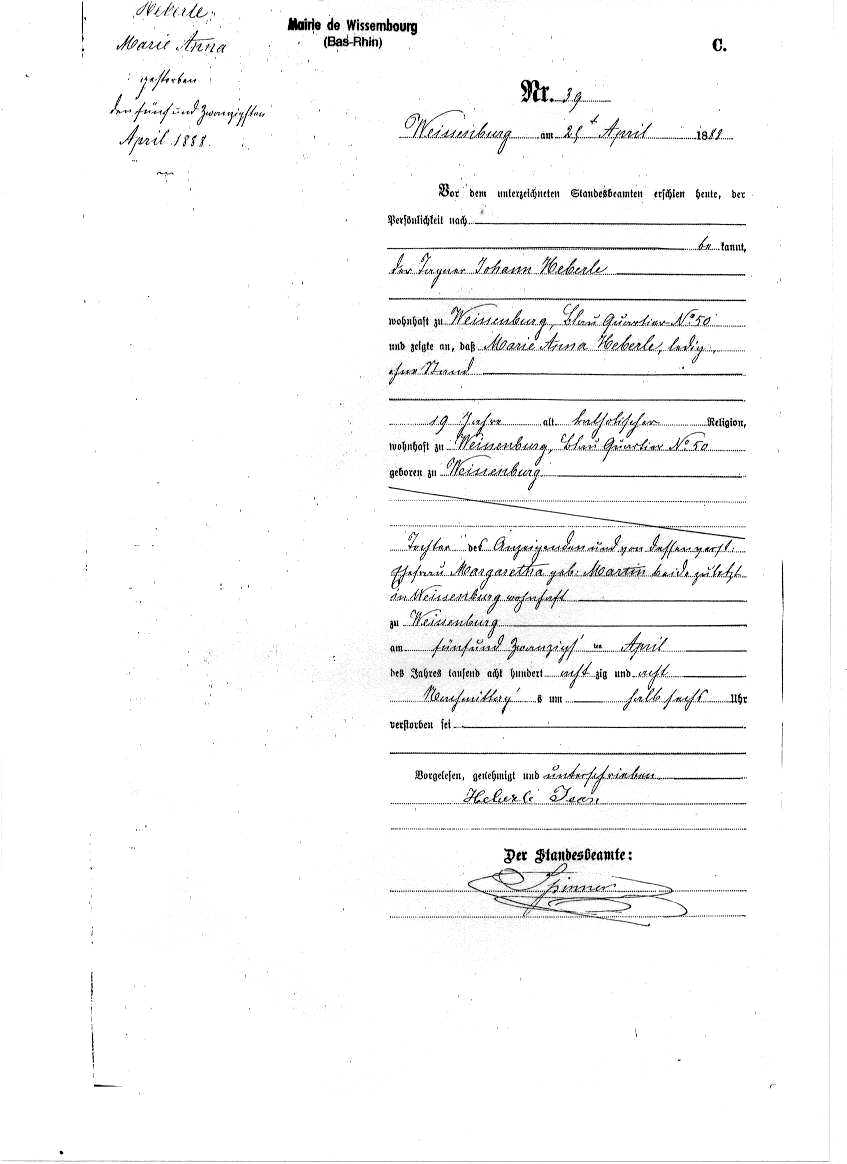 Heberle,
Marie Anna
gestorben
den fünf und zwanzigsten
April 1888.
Mairie de Wissembourg
(Bas-Rhin)
C.
Nr. 39
Weissenburg am April 1888
Vor dem unterzeichneten Standesbeamten erschien heute, der
Persönlichkeit nach
be kannt,
der Tagner Johann Heberle
wohnhaft zu Weissenburg, Blau Quartier No 50
und zeigte an, daß Marie Anna Heberle, ledig,
ohne Stand
19 Jahre alt, katholischer Religion,
wohnhaft zu Weissenburg, Blau Quartier No 50
geboren zu Weissenburg
Tochter des Anzeigenden und von dessen verst:
Ehefrau Margaretha geb: Martin beide zuletzt
in Weissenburg wohnhaft
zu Weissenburg
am fünf und zwanzigs ten April
des Jahres tausend acht hundert acht zig und acht
Nachmittag s um halb sechs Uhr
verstorben sei
Vorgelesen, genehmigt und unterschrieben
Heberle Jean
Der Standesbeamte:
Spinner